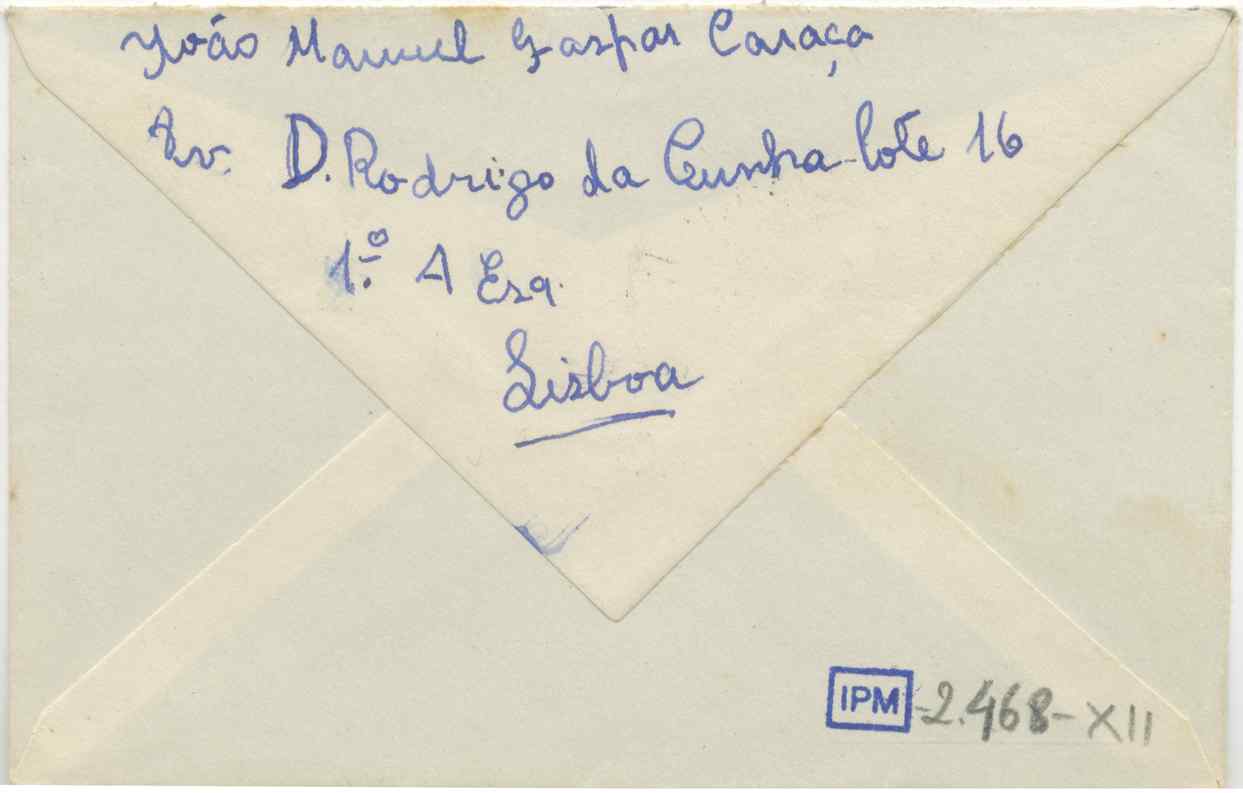 João Manuel Gaspar Caraça
Av. D. Rodrigo da Cunha lote 16
1.º A Esq.
Lisboa
IPM -2.468-XII